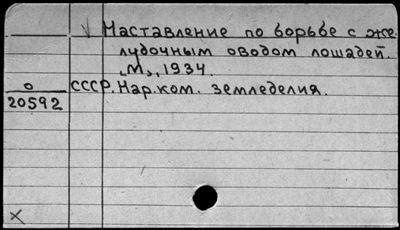 Наставление по борьбе с же-
лудочным оводом лошадей.
„М", 1934.
О
20592
СССР. Нар.ком. земледелия.